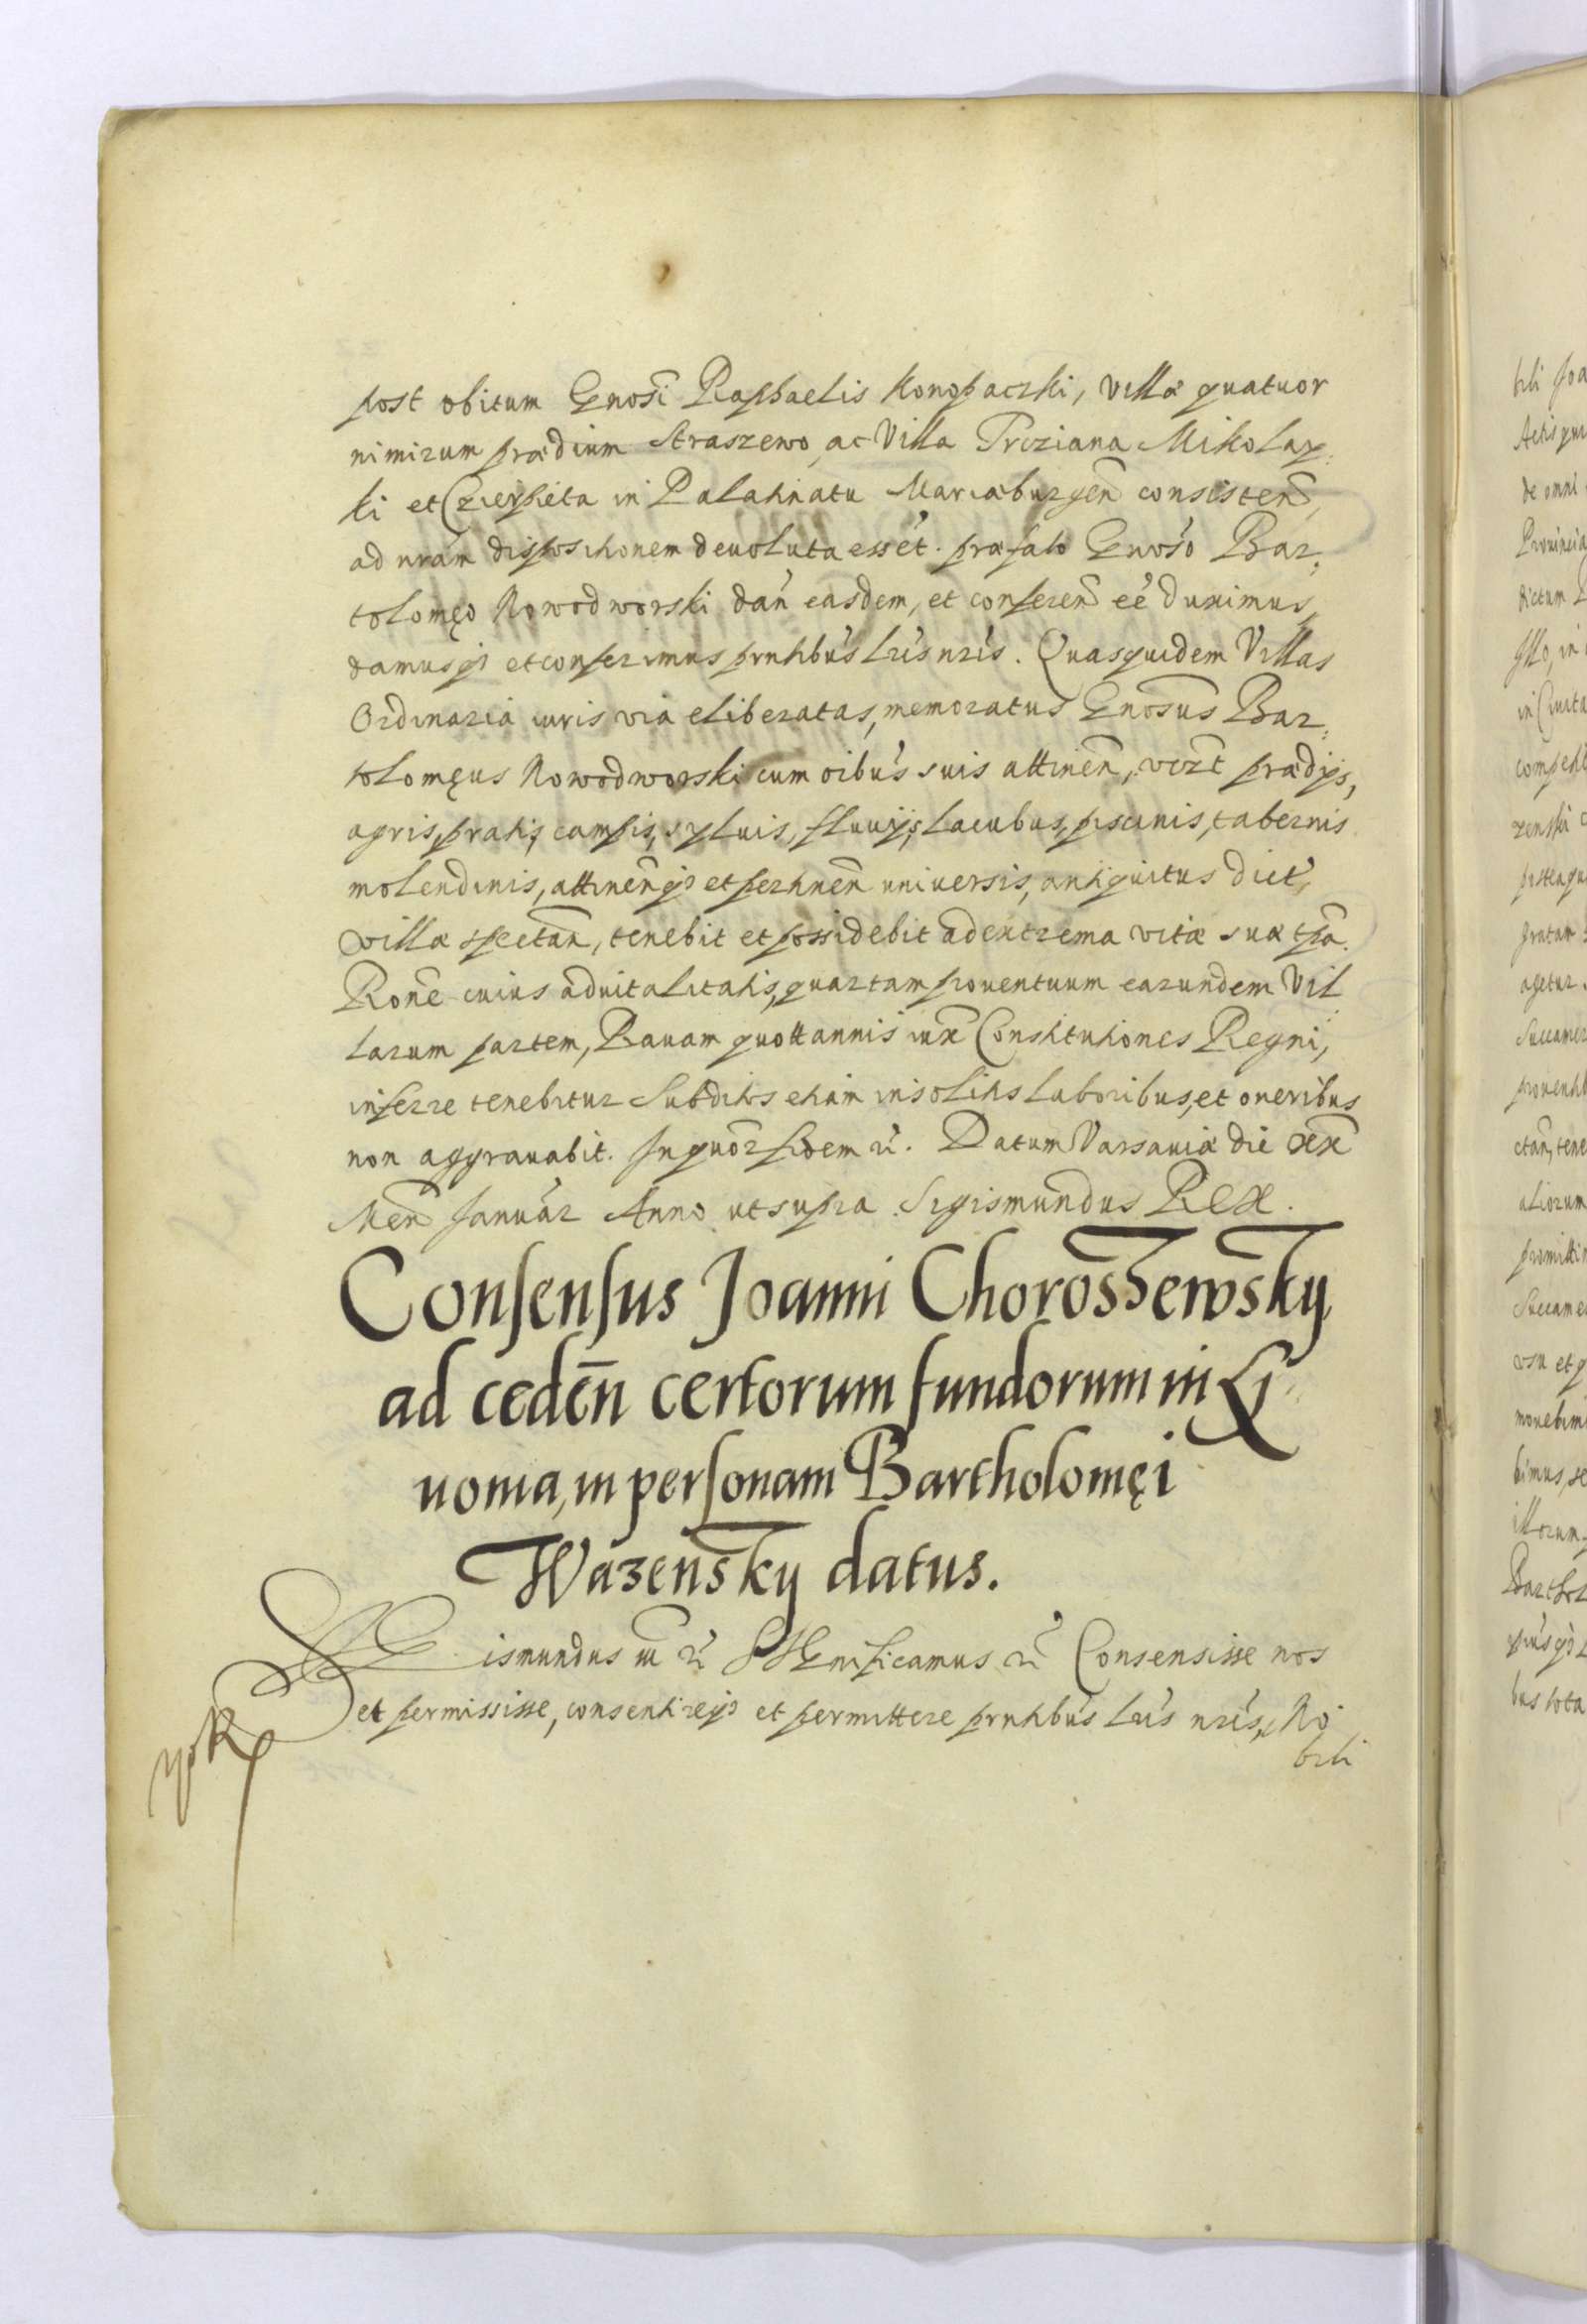 post obitum Gnosi Raphaelis Konopaczki, villæ quatuor
nimirum prædium Straszewo, ac Villa Trcziana Mikolay,
ki et Czierpieta in Palatinatu Mariæburgen consisten,
ad nram dispositionem devoluta essét. præfato Gnoso Bar,
tolomęo Nowodworski dan easdem, et conferen eé duximus,
damusq et conferimus pntibus Lris nris. Quasquidem Villas
Ordinaria iuris via eliberatas, memoratus Gnosus Bar,
tolomęus Nowodworski cum oibus suis attinen, vizt prædijs,
agris, pratis, campis, syluis, fluvijs, lacubus, piscinis, tabernis
molendinis, attinenq et pertinen universis, antiquitus dict,
villæ spectan, tenebit et possidebit ad extrema vitæ suæ tpa.
Rone cuius aduitalitatis, quartam prouentuum earundem Vil
larum partem, Ravam quottannis iux Constitutiones Regni,
inferre tenebitur Subditos etiam insolitis laboribus, et oneribus
non aggrauabit. In quor fidem &. Datum Varsaviæ die xx
Men Január Anno ut supra. Sigismundus Rex.
Consensus Joanni Chorosszewsky
ad ceden certorum fundorum in Li
uonia, in personam Bartholomęi
Wazensky datus.
SIGismundus III & SIGnificamus & Consensisse nos
et permisisse, consentireq et permittere pntibus Lris nris, No
bili
bili Joa
Actis qui
de omni
Provincia
dictum
Illo, in
compet
zenski
postea
gratam
agetur
Succames
prouent
ctan, tene
aliorum
promitti
Succame
usu et
mouebim
bimus, se
illorum
Barthol
bus tota